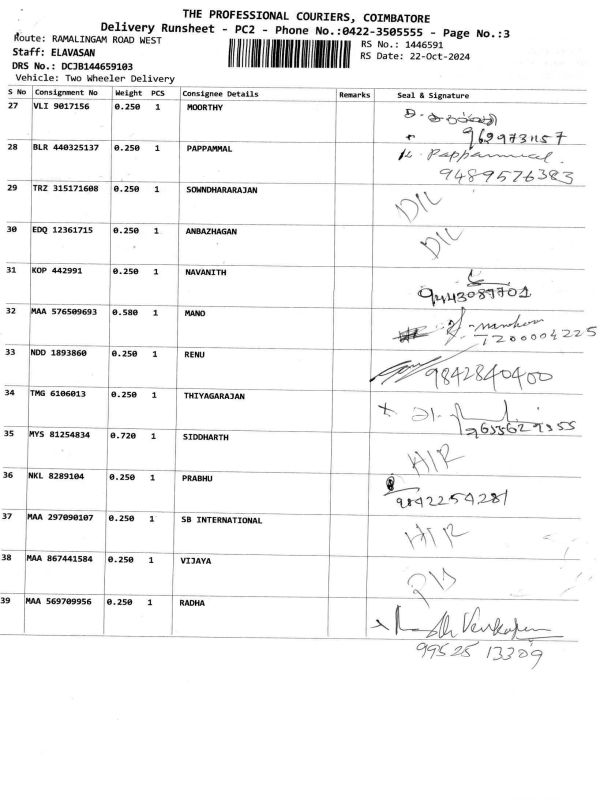 THE PROFESSIONAL COURIERS, COIMBATORE
Delivery Runsheet - PC2 - Phone No.:0422-3505555 - Page No.:3
Route: RAMALINGAM ROAD WEST
RS No.: 1446591
Staff: ELAVASAN
RS Date: 22-Oct-2024
DRS No.: DCJB144659103
Vehicle: Two Wheeler Delivery
S No Consignment No Weight PCS Consignee Details Remarks Seal & Signature
27 VLI 9017156 0.250 1 MOORTHY
28 BLR 440325137 0.250 1 PAPPAMMAL Pappammal.
9489576383
29 TRZ 315171608 0.250 1 SOWNDHARARAJAN
30 EDQ 12361715 0.250 1 ANBAZHAGAN
31 KOP 442991 0.250 1 NAVANITH
9443087701
32 MAA 576509693 0.580 1 MANO
7200004225
33 NDD 1893860 0.250 1 RENU 9842840400
34 TMG 6106013 0.250 1 THIYAGARAJAN
35 MYS 81254834 0.720 1 SIDDHARTH
36 NKL 8289104 0.250 1 PRABHU
9842254281
37 MAA 297090107 0.250 1 SB INTERNATIONAL
38 MAA 867441584 0.250 1 VIJAYA
39 MAA 569709956 0.250 1 RADHA
99525 13309